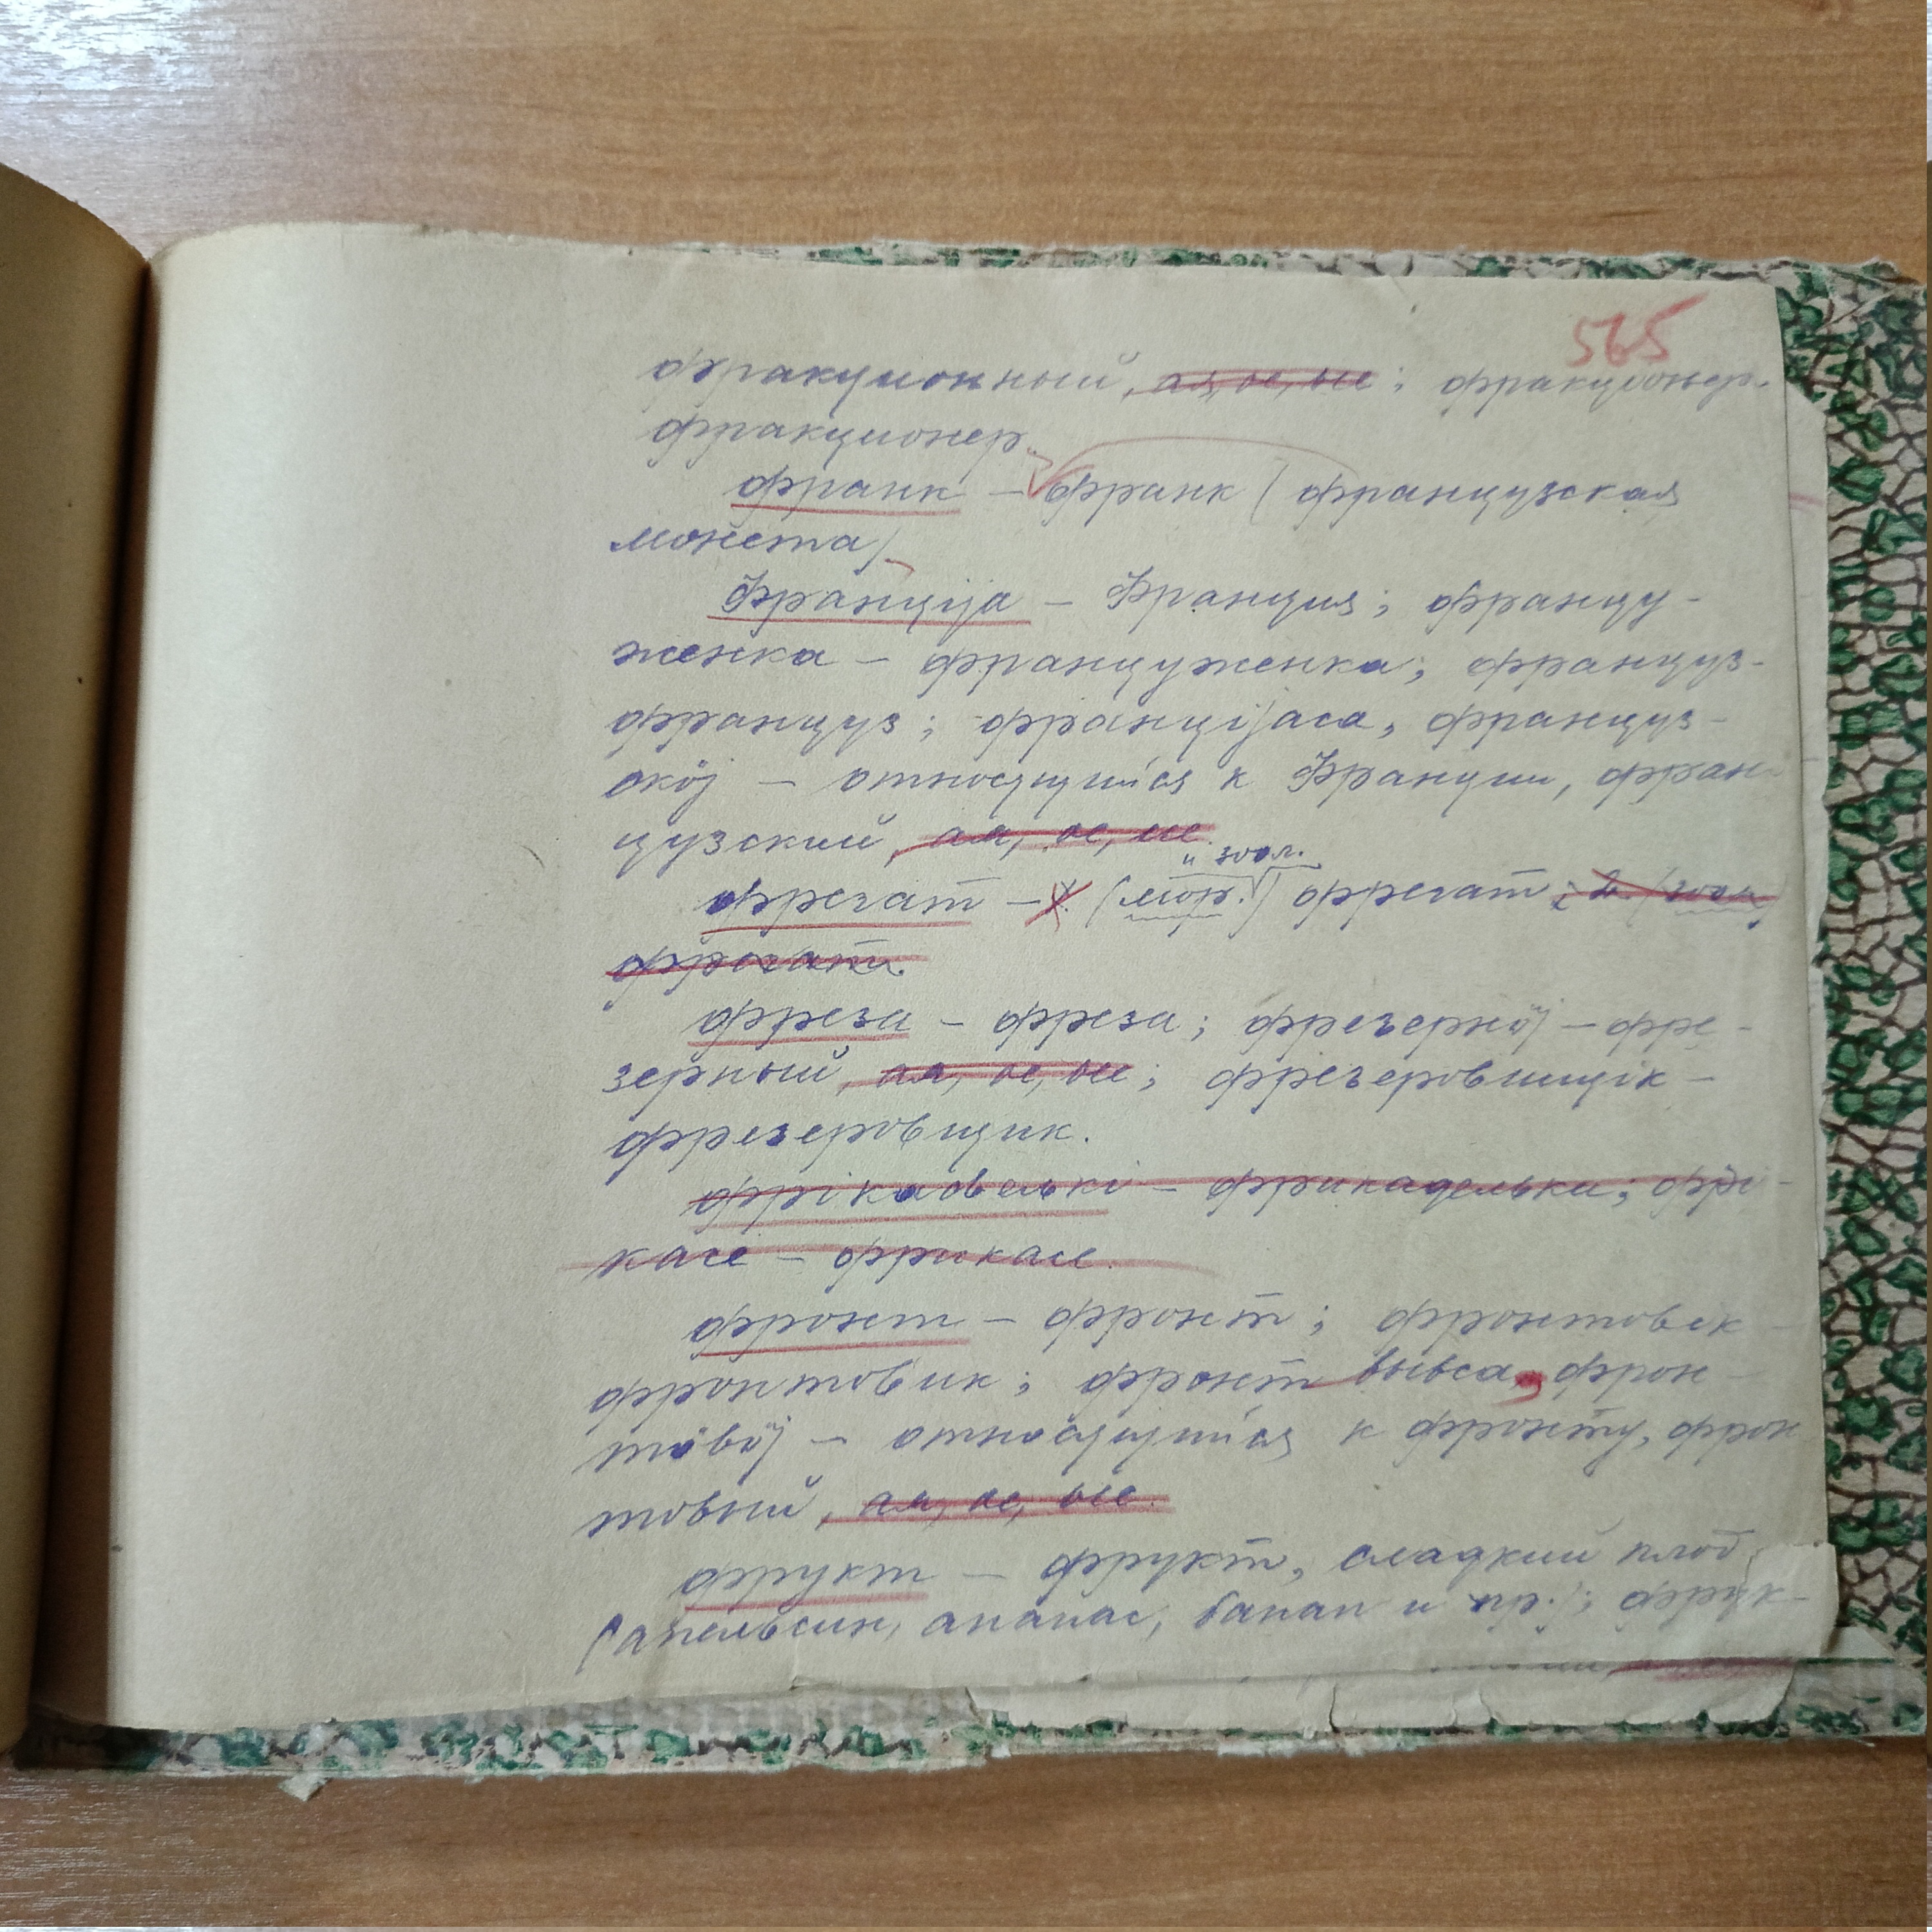 565
фракционный, ая, ое, ые; фракціонер-
фракционер.
франк – франк (французская
монета)
Франціја – Франция; францу-
женка – француженка; француз-
француз; франціјаса, француз-
скӧј – относящийся к Франции, фран-
цузский, ая, ое, ие.
и зоол.
фрегат – 1. (мор.) фрегат; 2. (зоол.)
фрегат.
фреза – фреза; фрезернӧј – фре-
зерный, ая, ое, ые; фрезеровшщік –
фрезеровщик.
фрікаделькі – фрикадельки; фрі-
касе – фрикасе.
фронт – фронт; фронтовік –
фронтовик; фронт вывса, фрон-
тӧвӧј – относящийся к фронту, фрон
товый, ая, ое, ые.
фрукт – фрукт, сладкий плод
(апельсин, ананас, банан и пр.); фрук-